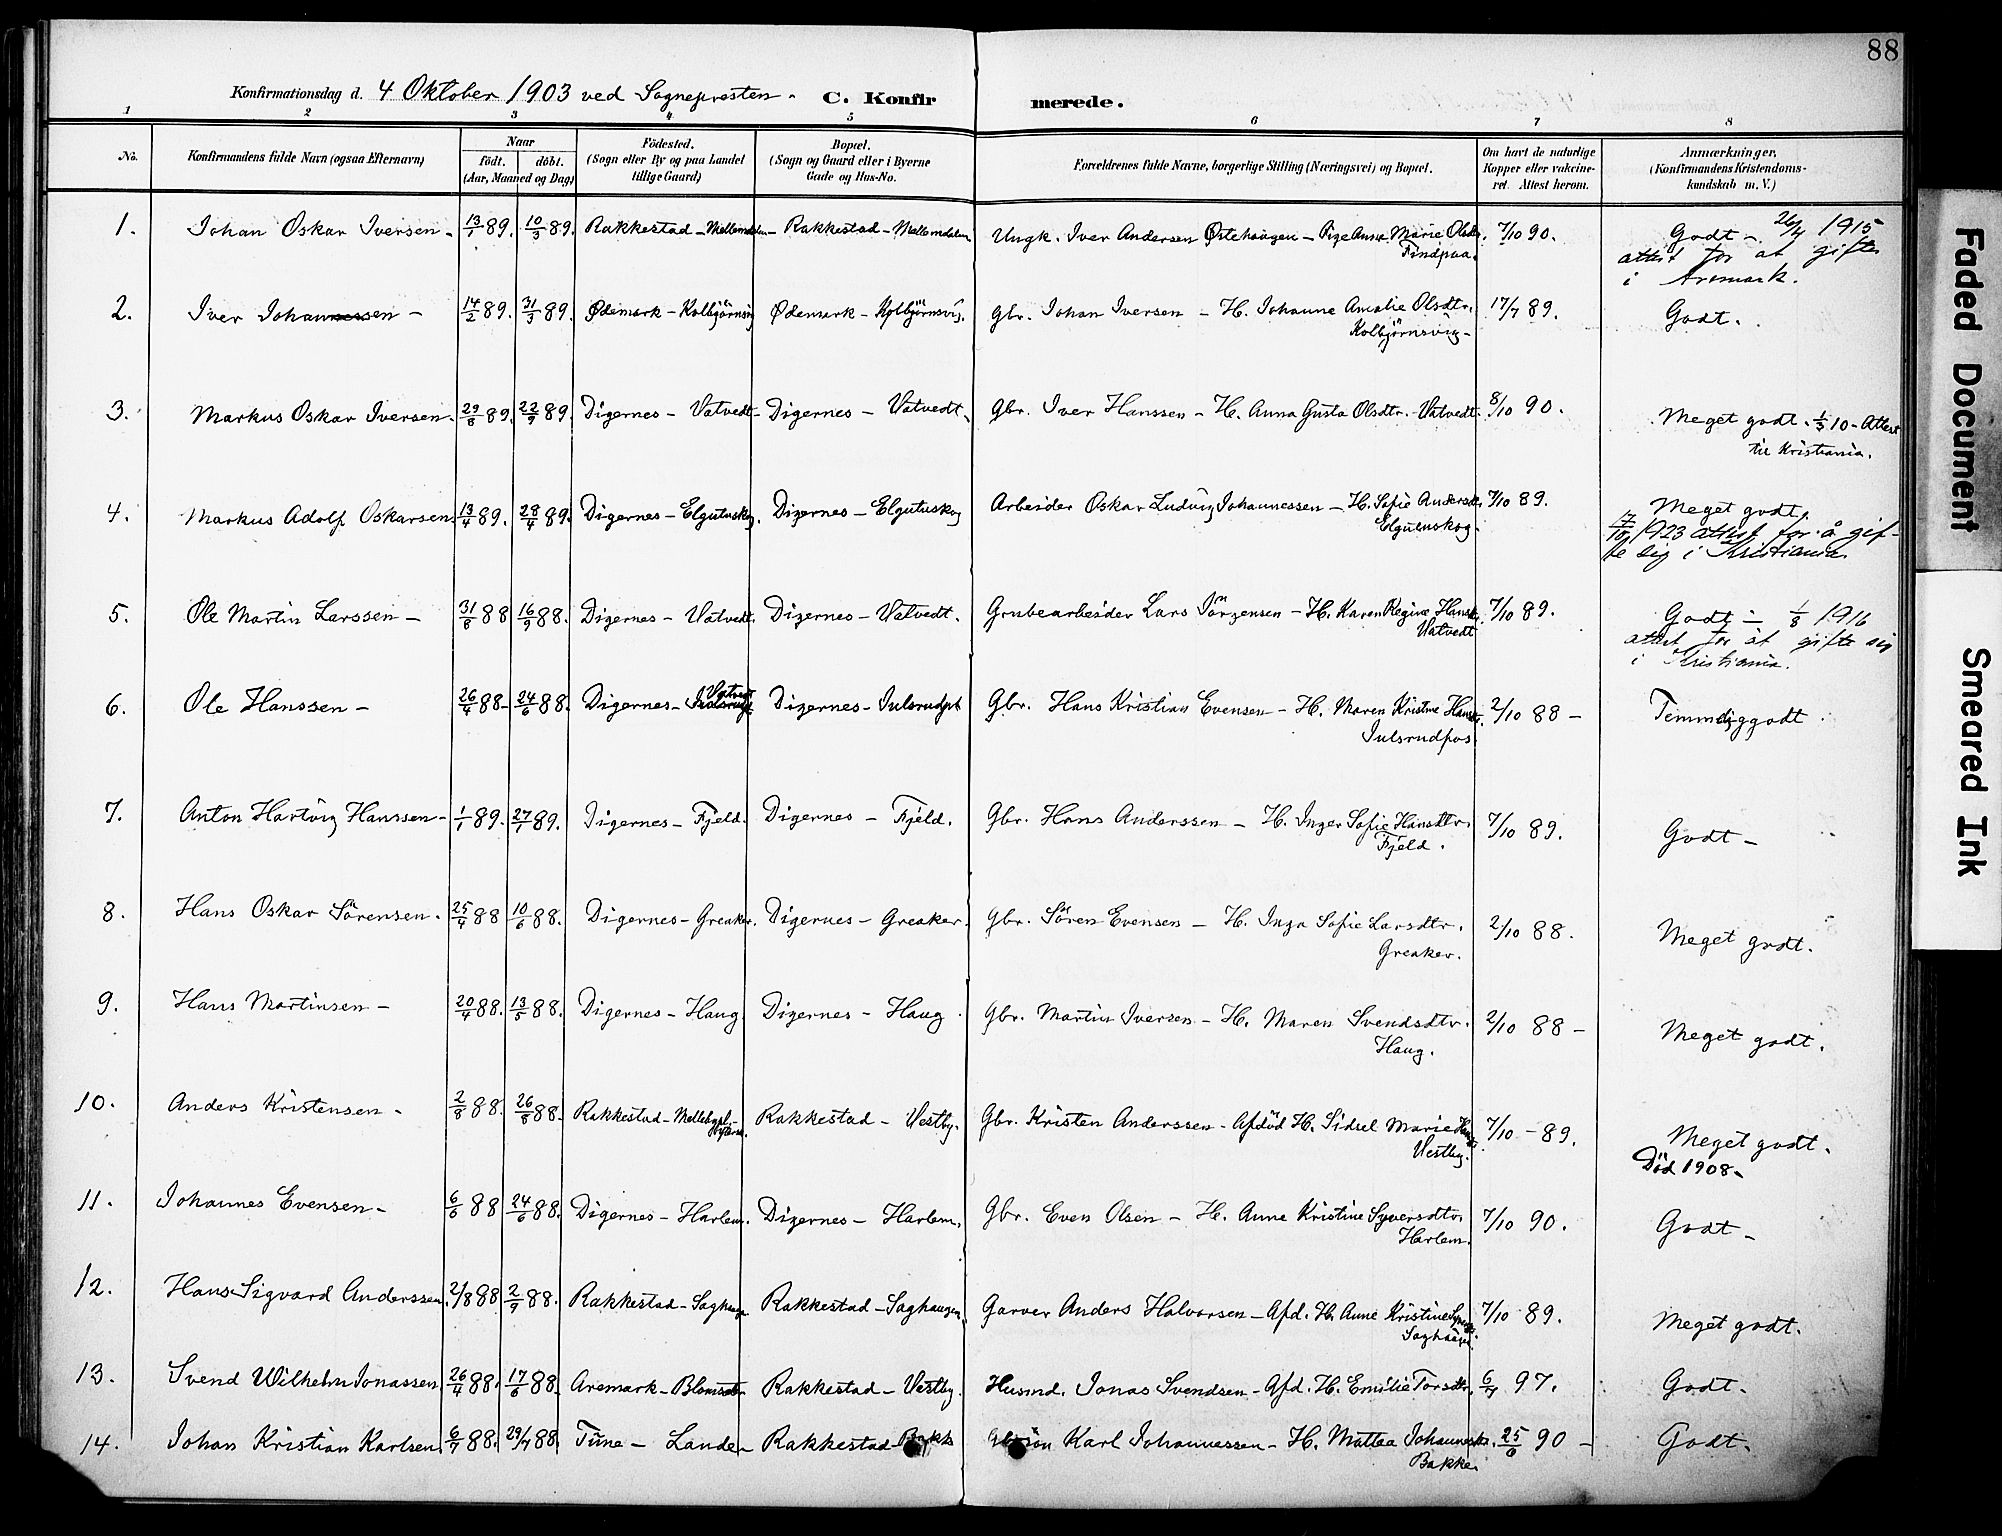 88
Konfirmationsdag d. 4 Oktober 1903 ved Sognepresten. C. Konfirmerede.
1 2 3 4 5 6 7 8
No. Konfirmandens fulde Navn (ogsaa Efternavn) Naar født. døbt. (Aar, Maaned og Dag) Fødested. (Sogn eller By og paa Landet tillige Gaard) Bopæl. (Sogn og Gaard eller i Byerne Gade og Hus-No. Forældrenes fulde Navne, borgerlige Stilling (Næringsvei) og Bopæl. Om havt de naturlige Kopper eller vakcineret. Attest herom. Anmærkninger. (Konfirmandens Kristendomskundskab m. V.)
1. Johan Oskar Iversen - 13/1 89. 10/3 89. Rakkestad - Rakkestad - Ungk. Iver Andersen Østehaugen - Pige Anna Marie Olsdtr. 7/10 90. Godt - 26/4 1915
attest for at gifte
i Aremark.
2. Iver Johannessen - 14/2 89. 31/3 89. Ødemark - Kolbjörnsvig Ødemark - Kolbjörnsvig. Gbr. Johan Iversen - H. Johanne Amalie Olsdtr. 17/7 89. Godt.
Kolbjörnsvig -
3. Markus Oskar Iversen. 29/8 89. 22/9 89. Digernes - Vatvedt - Digernes - Vatvedt. Gbr. Iver Hanssen - H. Anna Gusta Olsdtr. Vatvedt. 8/10 90. Meget godt. 10 - Attest
til Kristiania.
4. Markus Adolf Oskarsen. 13/4 89. 28/4 89. Digernes - Elgutuskog. Digernes - Elgutuskog Arbeider Oskar Ludvig Johannessen - H. Sofie Andersdtr. 7/10 89. Meget godt.
Elgutuskog.
17/10 1923 attest for å gif-
te sig i Kristiania
5. Ole Martin Larssen - 31/8 88 16/9 88. Digernes - Vatvedt. Digernes - Vatvedt. Grubearbeider Lars Jörgensen - H. Karen Regine Hansdtr. 7/10 89. Godt - 1/8 1916
Vatvedt
attest for at gifte sig
i Kristiania.
6. Ole Hanssen - 26/4 88 24/6 88. Digernes - Vatvedt Digernes - Julsrudpl Gbr. Hans Kristian Evensen - H. Maren Kristine Hansdtr. 2/10 88 - Temmelig godt
Julsrudpas
7. Anton Hartvig Hanssen - 1/1 89. 27/1 89. Digernes - Fjeld. Digernes - Fjeld. Gbr. Hans Anderssen - H. Inger Sofie Hansdtr. 7/10 89. Godt -
Fjeld.
8. Hans Oskar Sörensen. 25/4 88 10/6 88. Digernes - Greaker. Digernes - Greaker. Gbr. Sören Evensen - H. Inga Sofie Larsdtr. 2/10 88. Meget godt.
Greaker.
9. Hans Martinsen - 20/4 88. 13/5 88. Digernes - Haug. Digernes - Haug Gbr. Martin Iversen - H. Maren Svendsdtr. 2/10 88 - Meget godt.
Haug.
10. Anders Kristensen - 2/8 88. 26/8 88. Rakkestad - Rakkestad - Vestby. Gbr. Kristen Anderssen - Afdöd H. Sidsel Marie 7/10 - 89. Meget godt.
Vestby.
Död 1908 -
11. Johannes Evensen - 6/6 88 24/6 88. Digernes - Harlem. Digernes - Harlem. Gbr. Even Olsen - H. Anne Kristine Syversdtr. 7/10 90. Godt -
Harlem.
12. Hans Sigvard Anderssen. 2/8 88 2/9 88. Rakkestad - Saghaugen Rakkestad - Saghaugen. Garver Anders Halvorsen - Afd. H. Anne Kristine 7/10 89. Meget godt.
Saghaugen.
13. Svend Wilhelm Jonassen 26/4 88. 17/6 88. Aremark - Rakkestad - Vestby. Husmd. Jonas Svendsen - Afd. H. Emilie Torsdtr. 6/7 97. Godt.
14. Johan Kristian Karlsen 6/7 88. 29/7 88. Tune - Lande - Rakkestad - Karl Johannessen - H. Mattea Johannesdtr. 25/6 90 - Godt.
Bakke.
Faded Document
Smeared Ink